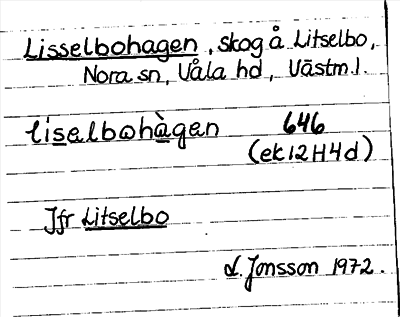 Lisselbohagen, skog å Litselbo,
Nora sn, Våla hd, Västm.l.
liselbohàgen 646
(ek12H4d)
Jfr Litselbo
L. Jonsson 1972.